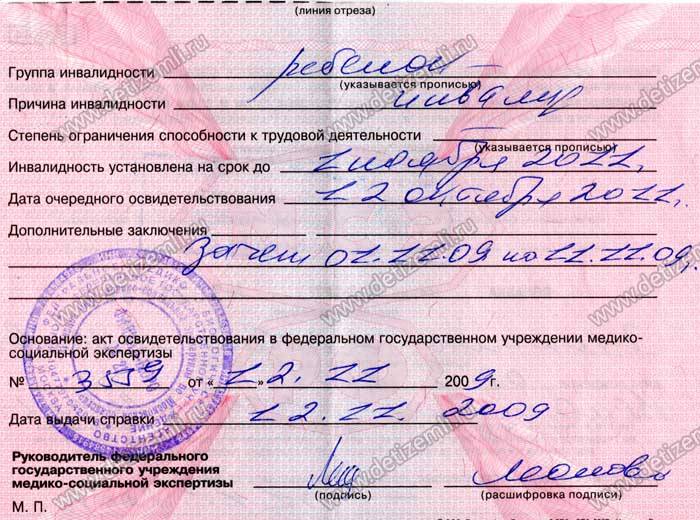 (линия отреза)
Группа инвалидности ребенок –
(указывается прописью)
Причина инвалидности инвалид
Степень ограничения способности к трудовой деятельности
(указывается прописью)
Инвалидность установлена на срок до 1 ноября 2011.
Дата очередного освидетельствования 12 октября 2011.
Дополнительные заключения
Зачет 01.11.09 по 11.11.09.
Основание: акт освидетельствования в федеральном государственном учреждении медико-
социальной экспертизы
№ 3559 от « 12 » 11 2009 г.
Дата выдачи справки 12. 11. 2009
Руководитель федерального
государственного учреждения
медико-социальной экспертизы
(подпись) (расшифровка подписи)
М. П.
www.detizemli.ru